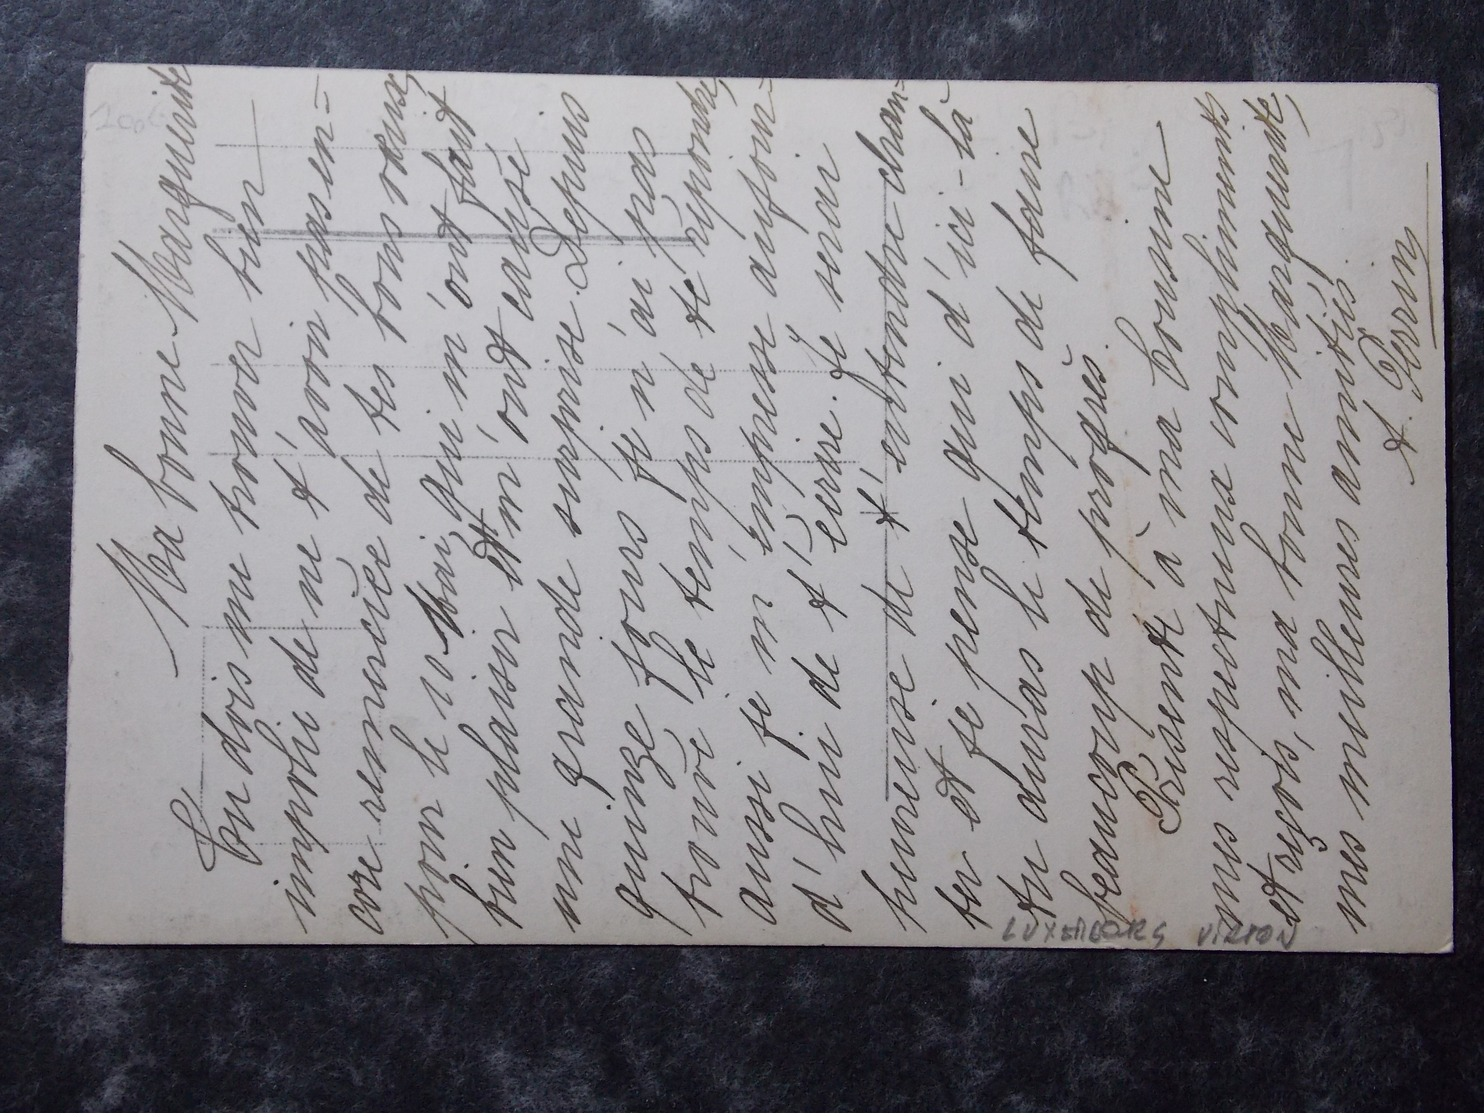 Ma bonne Marguerite
Tu dois me trouver bien
impolie de ne t'avoir pas en-
core remerciée de tes bons voeux
pour le 10 Mai, qui m'ont fait
bien plaisir et m'ont causé
une grande surprise. Depuis
quinze jours je n'ai pas
trouvé le temps de te répondre,
aussi je m'empresse aujour-
d'hui de t'écrire. Je serai
heureuse de t'entendre chan-
ter et je pense qui d'ici-là
tu auras le temps de faire
beaucoup de progrès.
Présente à ma Cousine
mes respectueux compliments
et reçois, ma bonne Marguerite,
mes meilleures amitiés.
A. Perin
LUXEMBOURG VIRTON